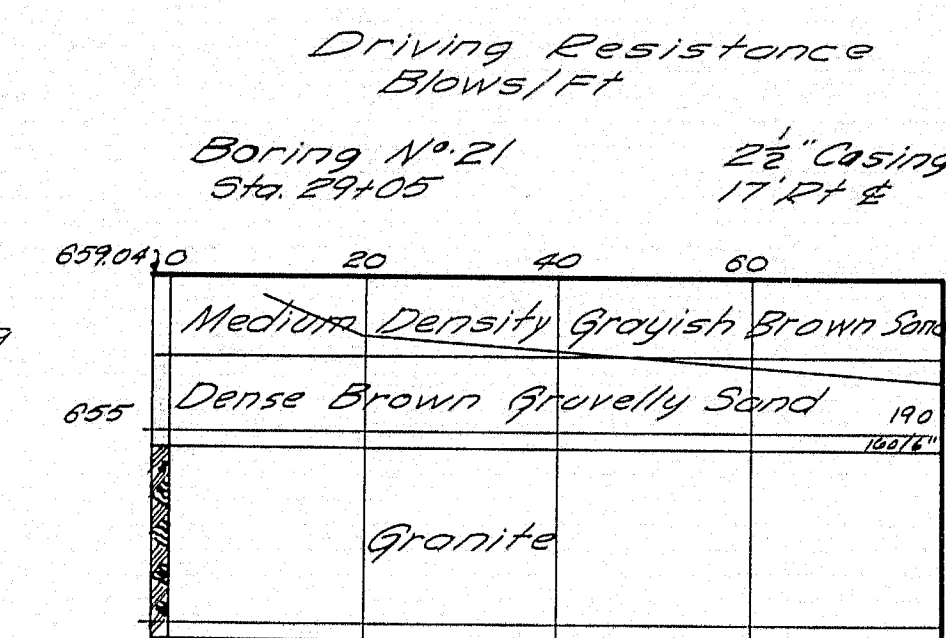 Driving Resistance
Blows/Ft
Boring No. 21
Sta. 29+05
2½" Casing
17' Rt ℄
659.04
0 20 40 60
Medium Density Grayish Brown Sand
655
Dense Brown Gravelly Sand
190
160/6"
Granite